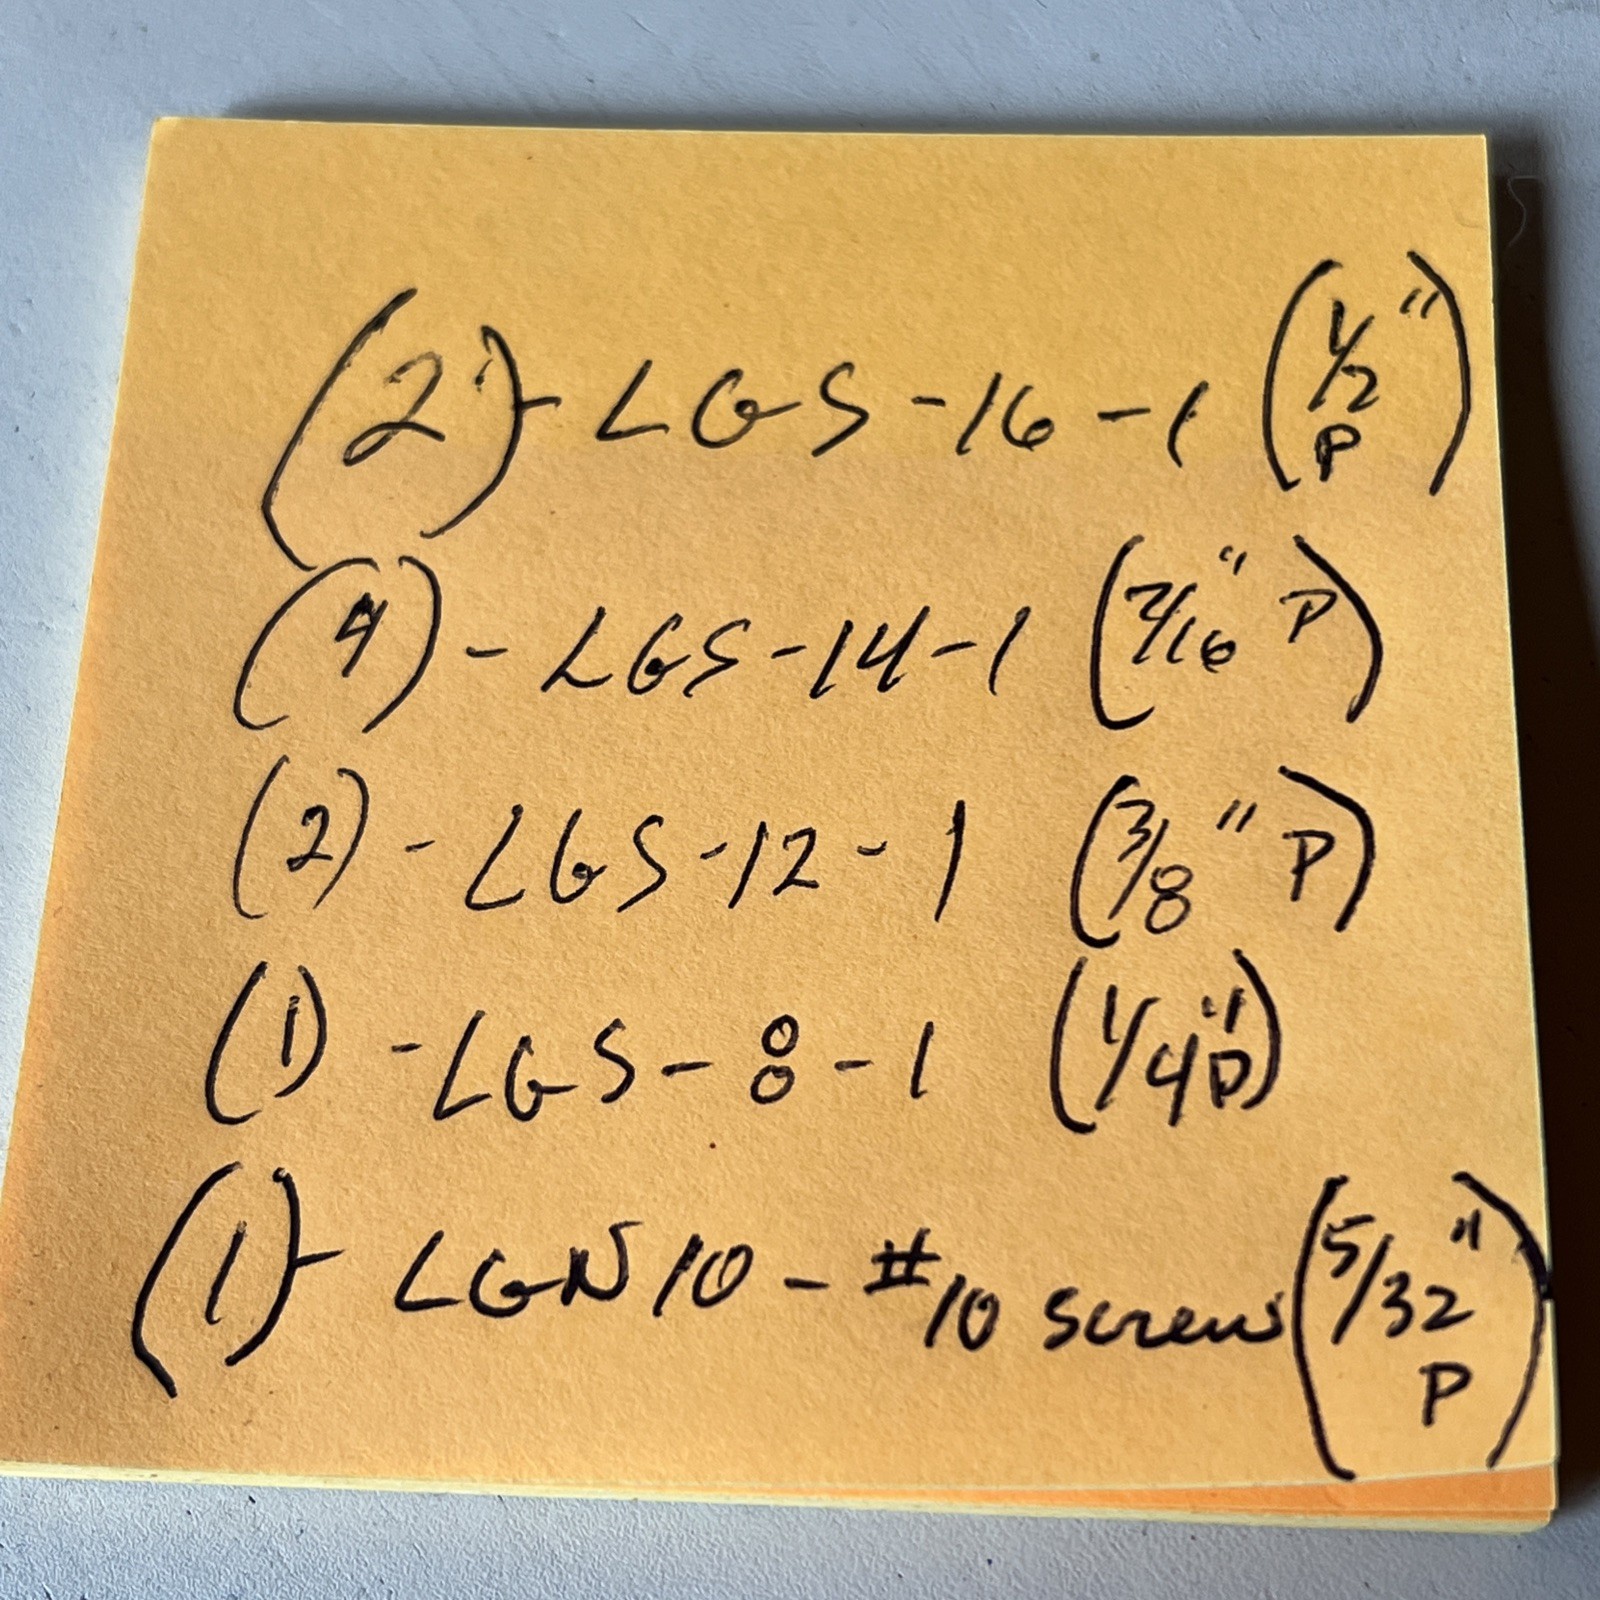 (2)- LGS-16-1 (1/2" P)
(4)- LGS-14-1 (7/16" P)
(2)- LGS-12-1 (3/8" P)
(1)-LGS-8-1 (1/4" P)
(1)- LGN10-#10 screw (5/32" P)